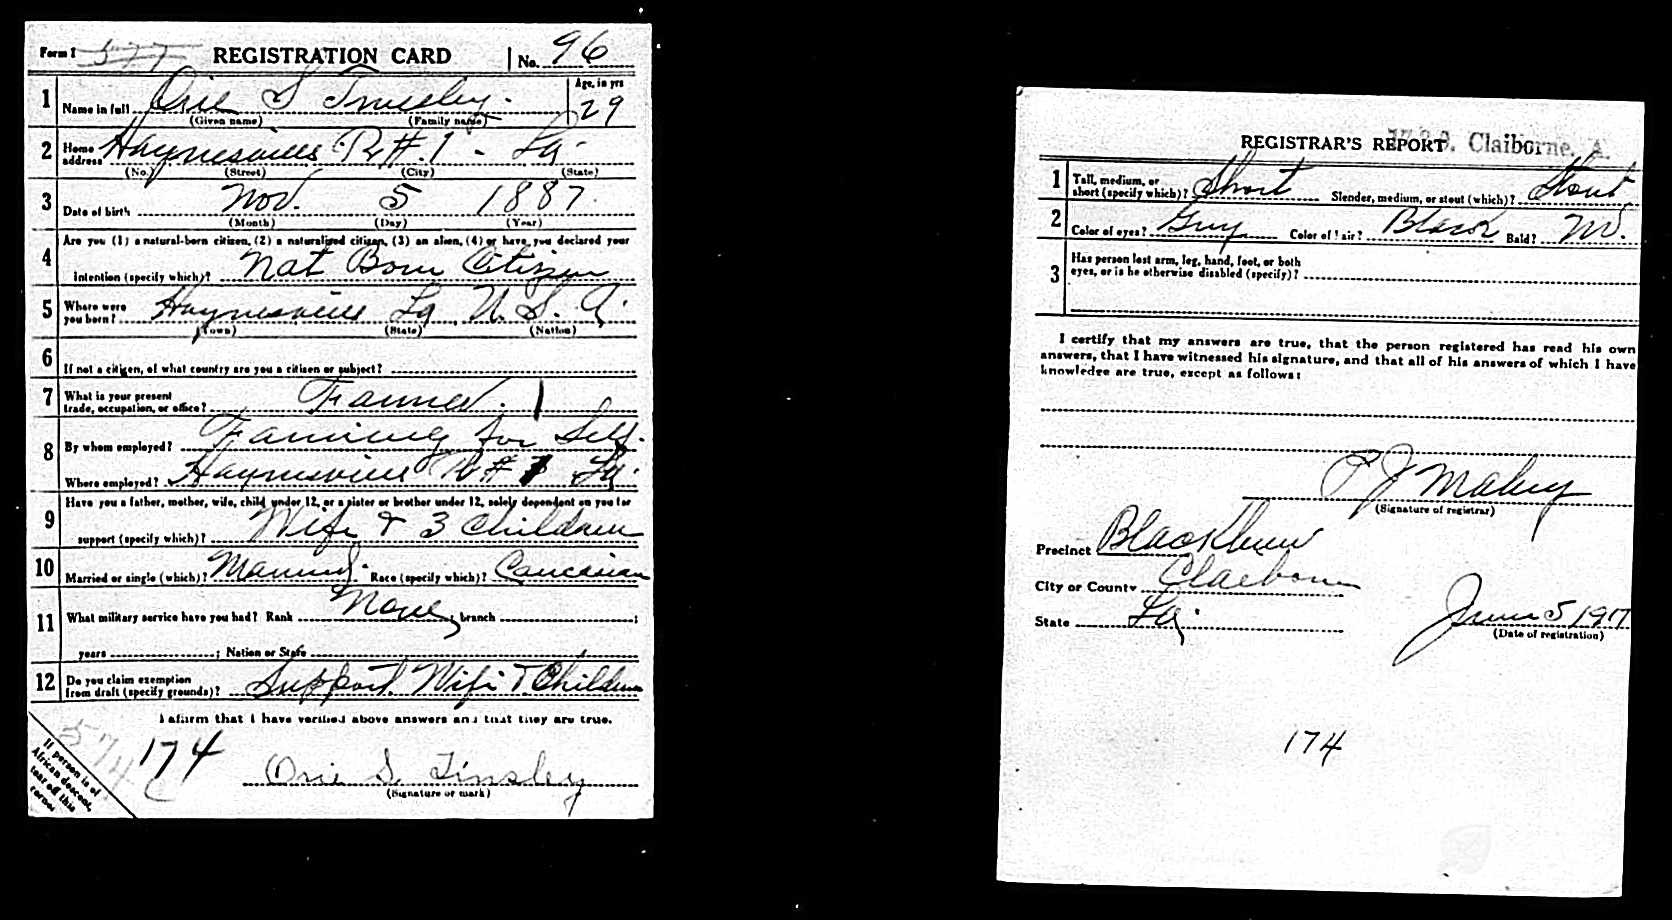 Form 1 577 REGISTRATION CARD No. 96
1 Name in full Orie S Tinsley. Age, in yrs 29
(Given name) (Family name)
2 Home address Haynesville R #.1 - La.
(No.) (Street) (City) (State)
3 Date of birth Nov. 5 1887
(Month) (Day) (Year)
4 Are you (1) a natural-born citizen, (2) a naturalized citizen, (3) an alien, (4) or have you declared your
intention (specify which)? Nat Born Citizen
5 Where were you born? Haynesville La U. S. A.
(Town) (State) (Nation)
6 If not a citizen, of what country are you a citizen or subject?
7 What is your present trade, occupation, or office? Farmer. 1
8 By whom employed? Farming for Self.
Where employed? Haynesville R # 1 La.
9 Have you a father, mother, wife, child under 12, or a sister or brother under 12, solely dependent on you for
support (specify which)? Wife & 3 Children
10 Married or single (which)? Married. Race (specify which)? Caucasian
11 What military service have you had? Rank None; branch ;
years ; Nation or State
12 Do you claim exemption from draft (specify grounds)? Support Wife & Children
I affirm that I have verified above answers and that they are true.
174
Orie S. Tinsley
(Signature or mark)
If person is of
African descent,
tear off this
corner
574 C
REGISTRAR'S REPORT Claiborne, A.
1 Tall, medium, or short (specify which)? Short Slender, medium, or stout (which)? Stout
2 Color of eyes? Grey Color of hair? Black Bald? No.
3 Has person lost arm, leg, hand, foot, or both
eyes, or is he otherwise disabled (specify)?
I certify that my answers are true, that the person registered has read his own
answers, that I have witnessed his signature, and that all of his answers of which I have
knowledge are true, except as follows:
P J Maley
(Signature of registrar)
Precinct Blackburn
City or County Claiborne
State La.
June 5 1917
(Date of registration)
174